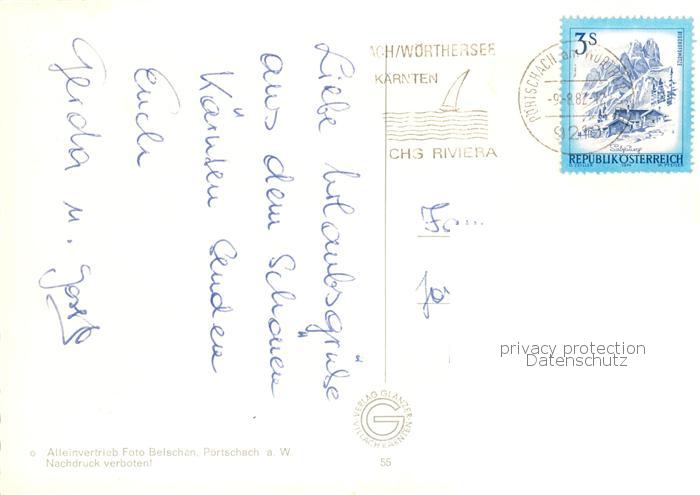 Liebe Urlaubsgrüße
aus dem Schönen
Kärnten senden
Euch
Gerda u. Josef
ACH/WÖRTHERSEE
KÄRNTEN
CHS RIVIERA
PÖRTSCHACH am WÖRTH
-9.-8.82
3S
BISCHOFSMÜTZE
Salzburg
REPUBLIK ÖSTERREICH
Fa
privacy protection
Datenschutz
VERLAG GLANZER
VILLACH KÄRNTEN
G
Alleinvertrieb Foto Belschan, Pörtschach a. W.
Nachdruck verboten!
55